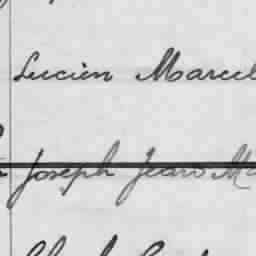 Lucien Marcel
Joseph Jean Ma